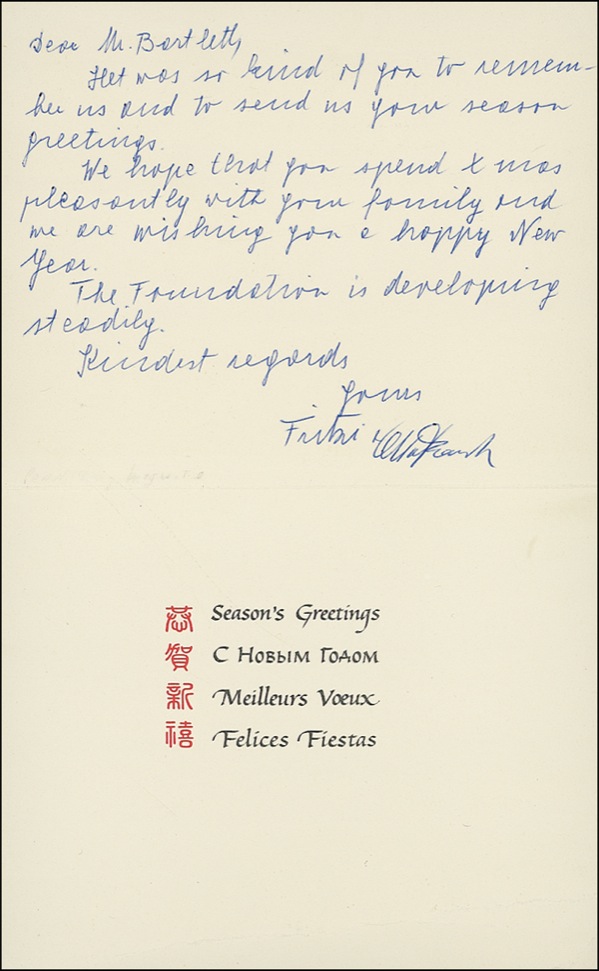 Dear Mr. Bartlett,
It was so kind of you to remem-
ber us and to send us your season
greetings.
We hope that you spend Xmas
pleasantly with your family and
we are wishing you a happy New
Year.
The Foundation is developing
steadily.
Kindest regards
Yours
Fritzi
恭賀新禧
Season's Greetings
С Новым Годом
Meilleurs Vœux
Felices Fiestas